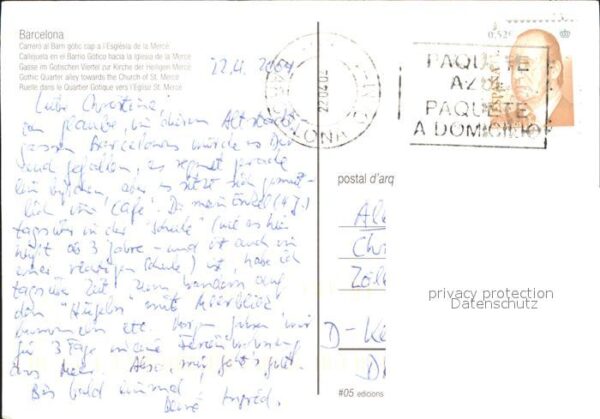 Barcelona
Carreró al Barri gòtic cap a l'Església de la Mercè
Callejuela en el Barrio Gótico hacia la Iglesia de la Mercè
Gasse im Gotischen Viertel zur Kirche der Heiligen Mercè
Gothic Quarter alley towards the Church of St. Mercè
Ruelle dans le Quartier Gotique vers l'Eglise St. Mercè
22.4.2004
Liebe
ich glaube, in diesen Altstadt-
gassen Barcelonas würde es Dir
auch gefallen, es regnet gerade
ein bißchen, aber es sitzt sich gemüt-
lich im "Café". Da mein Enkel (4 J.)
tagsüber in der "Schule" (wie es hier
heißt ab 3 Jahre - und ist auch in
einer Schule) ist, habe ich
tagsüber Zeit zum wandern auf
den "Hügeln" mit Meerblick
etc. Morgen fahren wir
für 3 Tage in eine Ferienwohnung
ans Meer. Also, mir geht's gut.
Bis bald einmal,
Deine Ingrid.
22 04 04
LONA
0,52€
PAQUETE
AZUL
PAQUETE
A DOMICILIO
postal d'arq
Zol
D-Ke
privacy protection
Datenschutz
#05 edicions